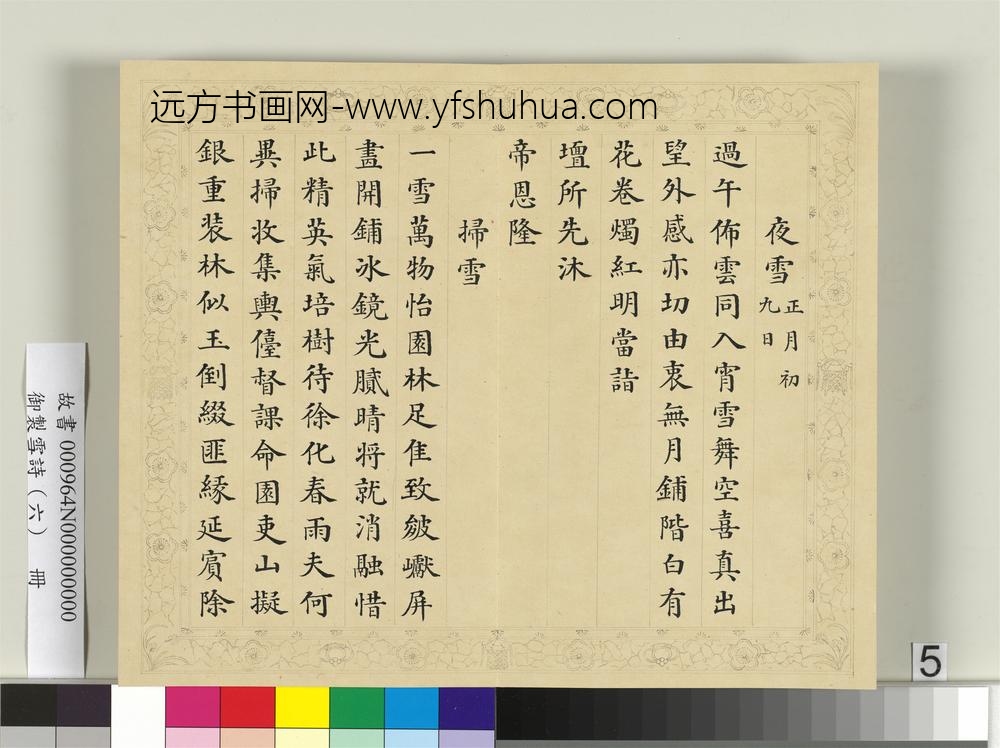 远方书画网-www.yfshuhua.com
夜雪 正月初九日
過午佈雲同入宵雪舞空喜真出
望外感亦切由衷無月鋪階白有
花卷燭紅明當詣
壇所先沐
帝恩隆
掃雪
一雪萬物怡園林足佳致皴巘屏
畵開鋪冰鏡光膩晴將就消融惜
此精英氣培樹待徐化春雨夫何
異掃收集輿儓督課命園吏山擬
銀重装林似玉倒綴匪緣延賓除
故書 000964N000000000
御製雪詩(六) 冊
5